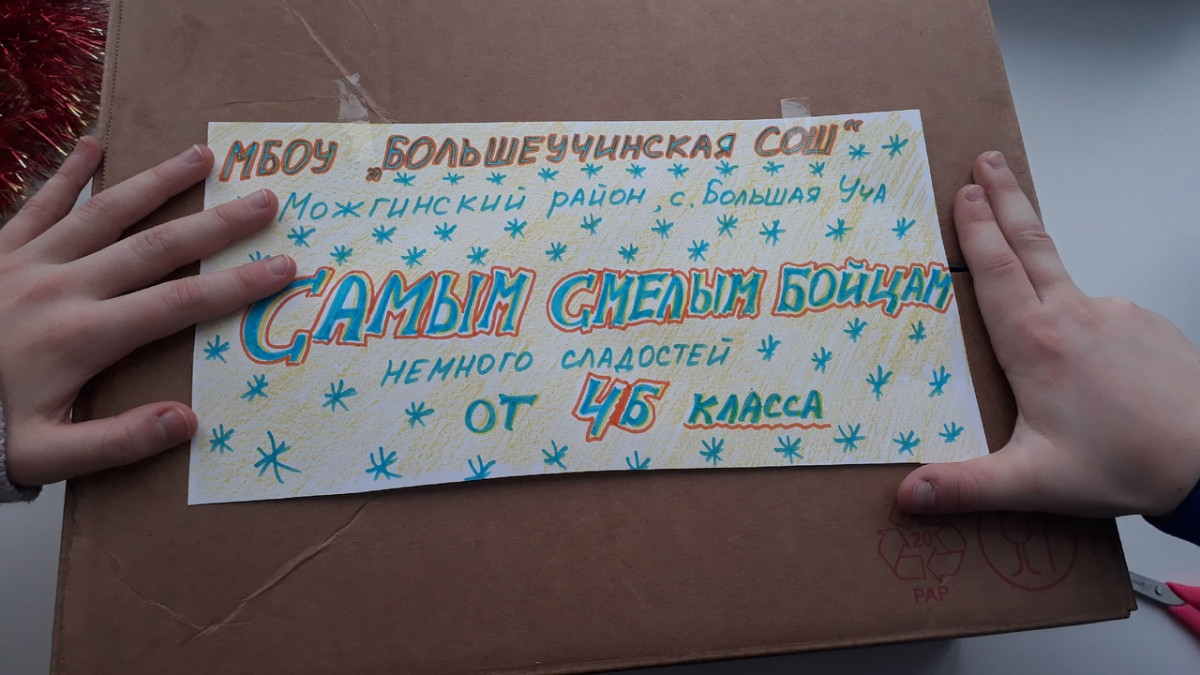 МБОУ „БОЛЬШЕУЧИНСКАЯ СОШ“
МОЖГИНСКИЙ РАЙОН, С. БОЛЬШАЯ УЧА
САМЫМ СМЕЛЫМ БОЙЦАМ
НЕМНОГО СЛАДОСТЕЙ
ОТ 4Б КЛАССА
20
PAP